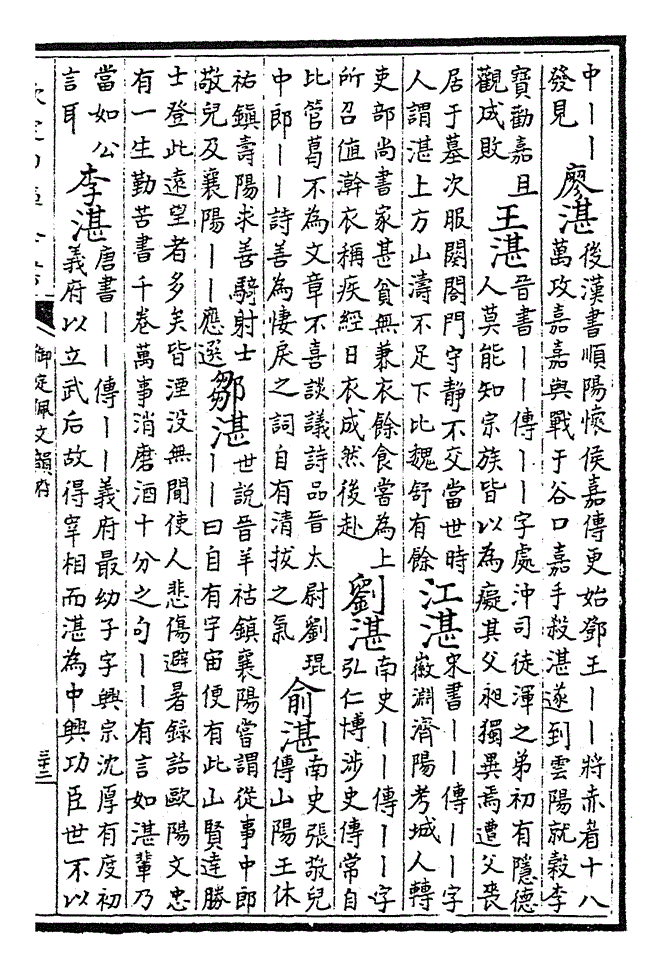 中――
發見
廖湛
後漢書順陽懷侯嘉傳更始鄧王――將赤眉十八
萬攻嘉嘉與戰于谷口嘉手殺湛遂到雲陽就穀李
寶勸嘉且
觀成敗
王湛
晉書――傳――字處沖司徒渾之弟初有隱德
人莫能知宗族皆以為癡其父昶獨異焉遭父喪
居于墓次服闋闔門守靜不交當世時
人謂湛上方山濤不足下比魏舒有餘
江湛
宋書――傳――字
徽淵濟陽考城人轉
吏部尚書家甚貧無兼衣餘食嘗為上
所召值澣衣稱疾經日衣成然後赴
劉湛
南史――傳――字
弘仁博涉史傳常自
比管葛不為文章不喜談議詩品晉太尉劉琨
中郎――詩善為悽戾之詞自有清拔之氣
俞湛
南史張敬兒
傳山陽王休
祐鎮壽陽求善騎射士
敬兒及襄陽――應選
鄒湛
世說晉羊祜鎮襄陽嘗謂從事中郎
――曰自有宇宙便有此山賢逹勝
士登此遠望者多矣皆湮没無聞使人悲傷避暑録話歐陽文忠
有一生勤苦書千卷萬事消磨酒十分之句――有言如湛輩乃
當如公
言耳
李湛
唐書――傳――義府最幼子字興宗沈厚有度初
義府以立武后故得宰相而湛為中興功臣世不以
御定佩文韻府